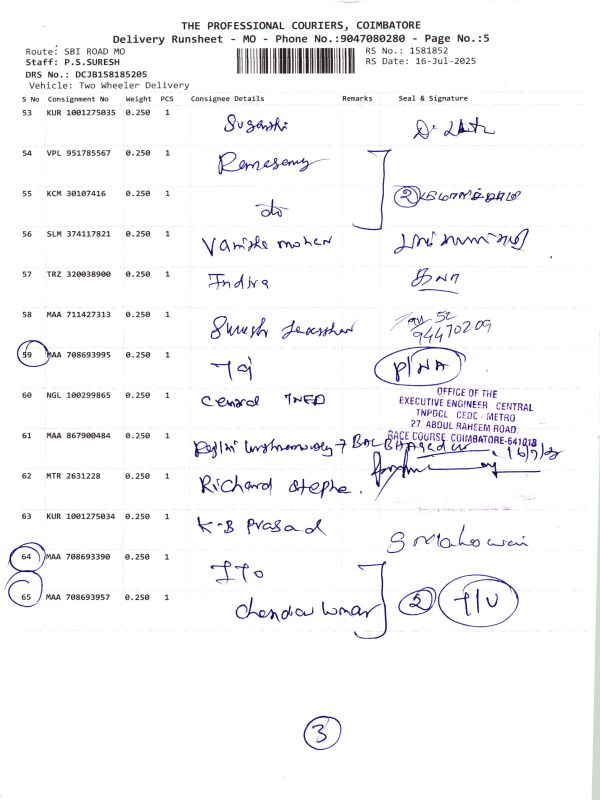 THE PROFESSIONAL COURIERS, COIMBATORE
Delivery Runsheet - MO - Phone No.:9047080280 - Page No.:5
Route: SBI ROAD MO
RS No.: 1581852
Staff: P.S.SURESH
RS Date: 16-Jul-2025
DRS No.: DCJB158185205
Vehicle: Two Wheeler Delivery
S No Consignment No Weight PCS Consignee Details Remarks Seal & Signature
53 KUR 1001275035 0.250 1
54 VPL 951785567 0.250 1
55 KCM 30107416 0.250 1 do 2
56 SLM 374117821 0.250 1
57 TRZ 320038900 0.250 1 Indira
58 MAA 711427313 0.250 1 Suresh
94470209
59 MAA 708693995 0.250 1 Taj P/NA
60 NGL 100299865 0.250 1
OFFICE OF THE
EXECUTIVE ENGINEER CENTRAL
TNPDCL CEDC / METRO
27, ABDUL RAHEEM ROAD,
RACE COURSE, COIMBATORE-641018
61 MAA 867900484 0.250 1
62 MTR 2631228 0.250 1 Richard Stephe.
63 KUR 1001275034 0.250 1 K-B Prasad
64 MAA 708693390 0.250 1 ITO
65 MAA 708693957 0.250 1 Chenda Kumar 2
3